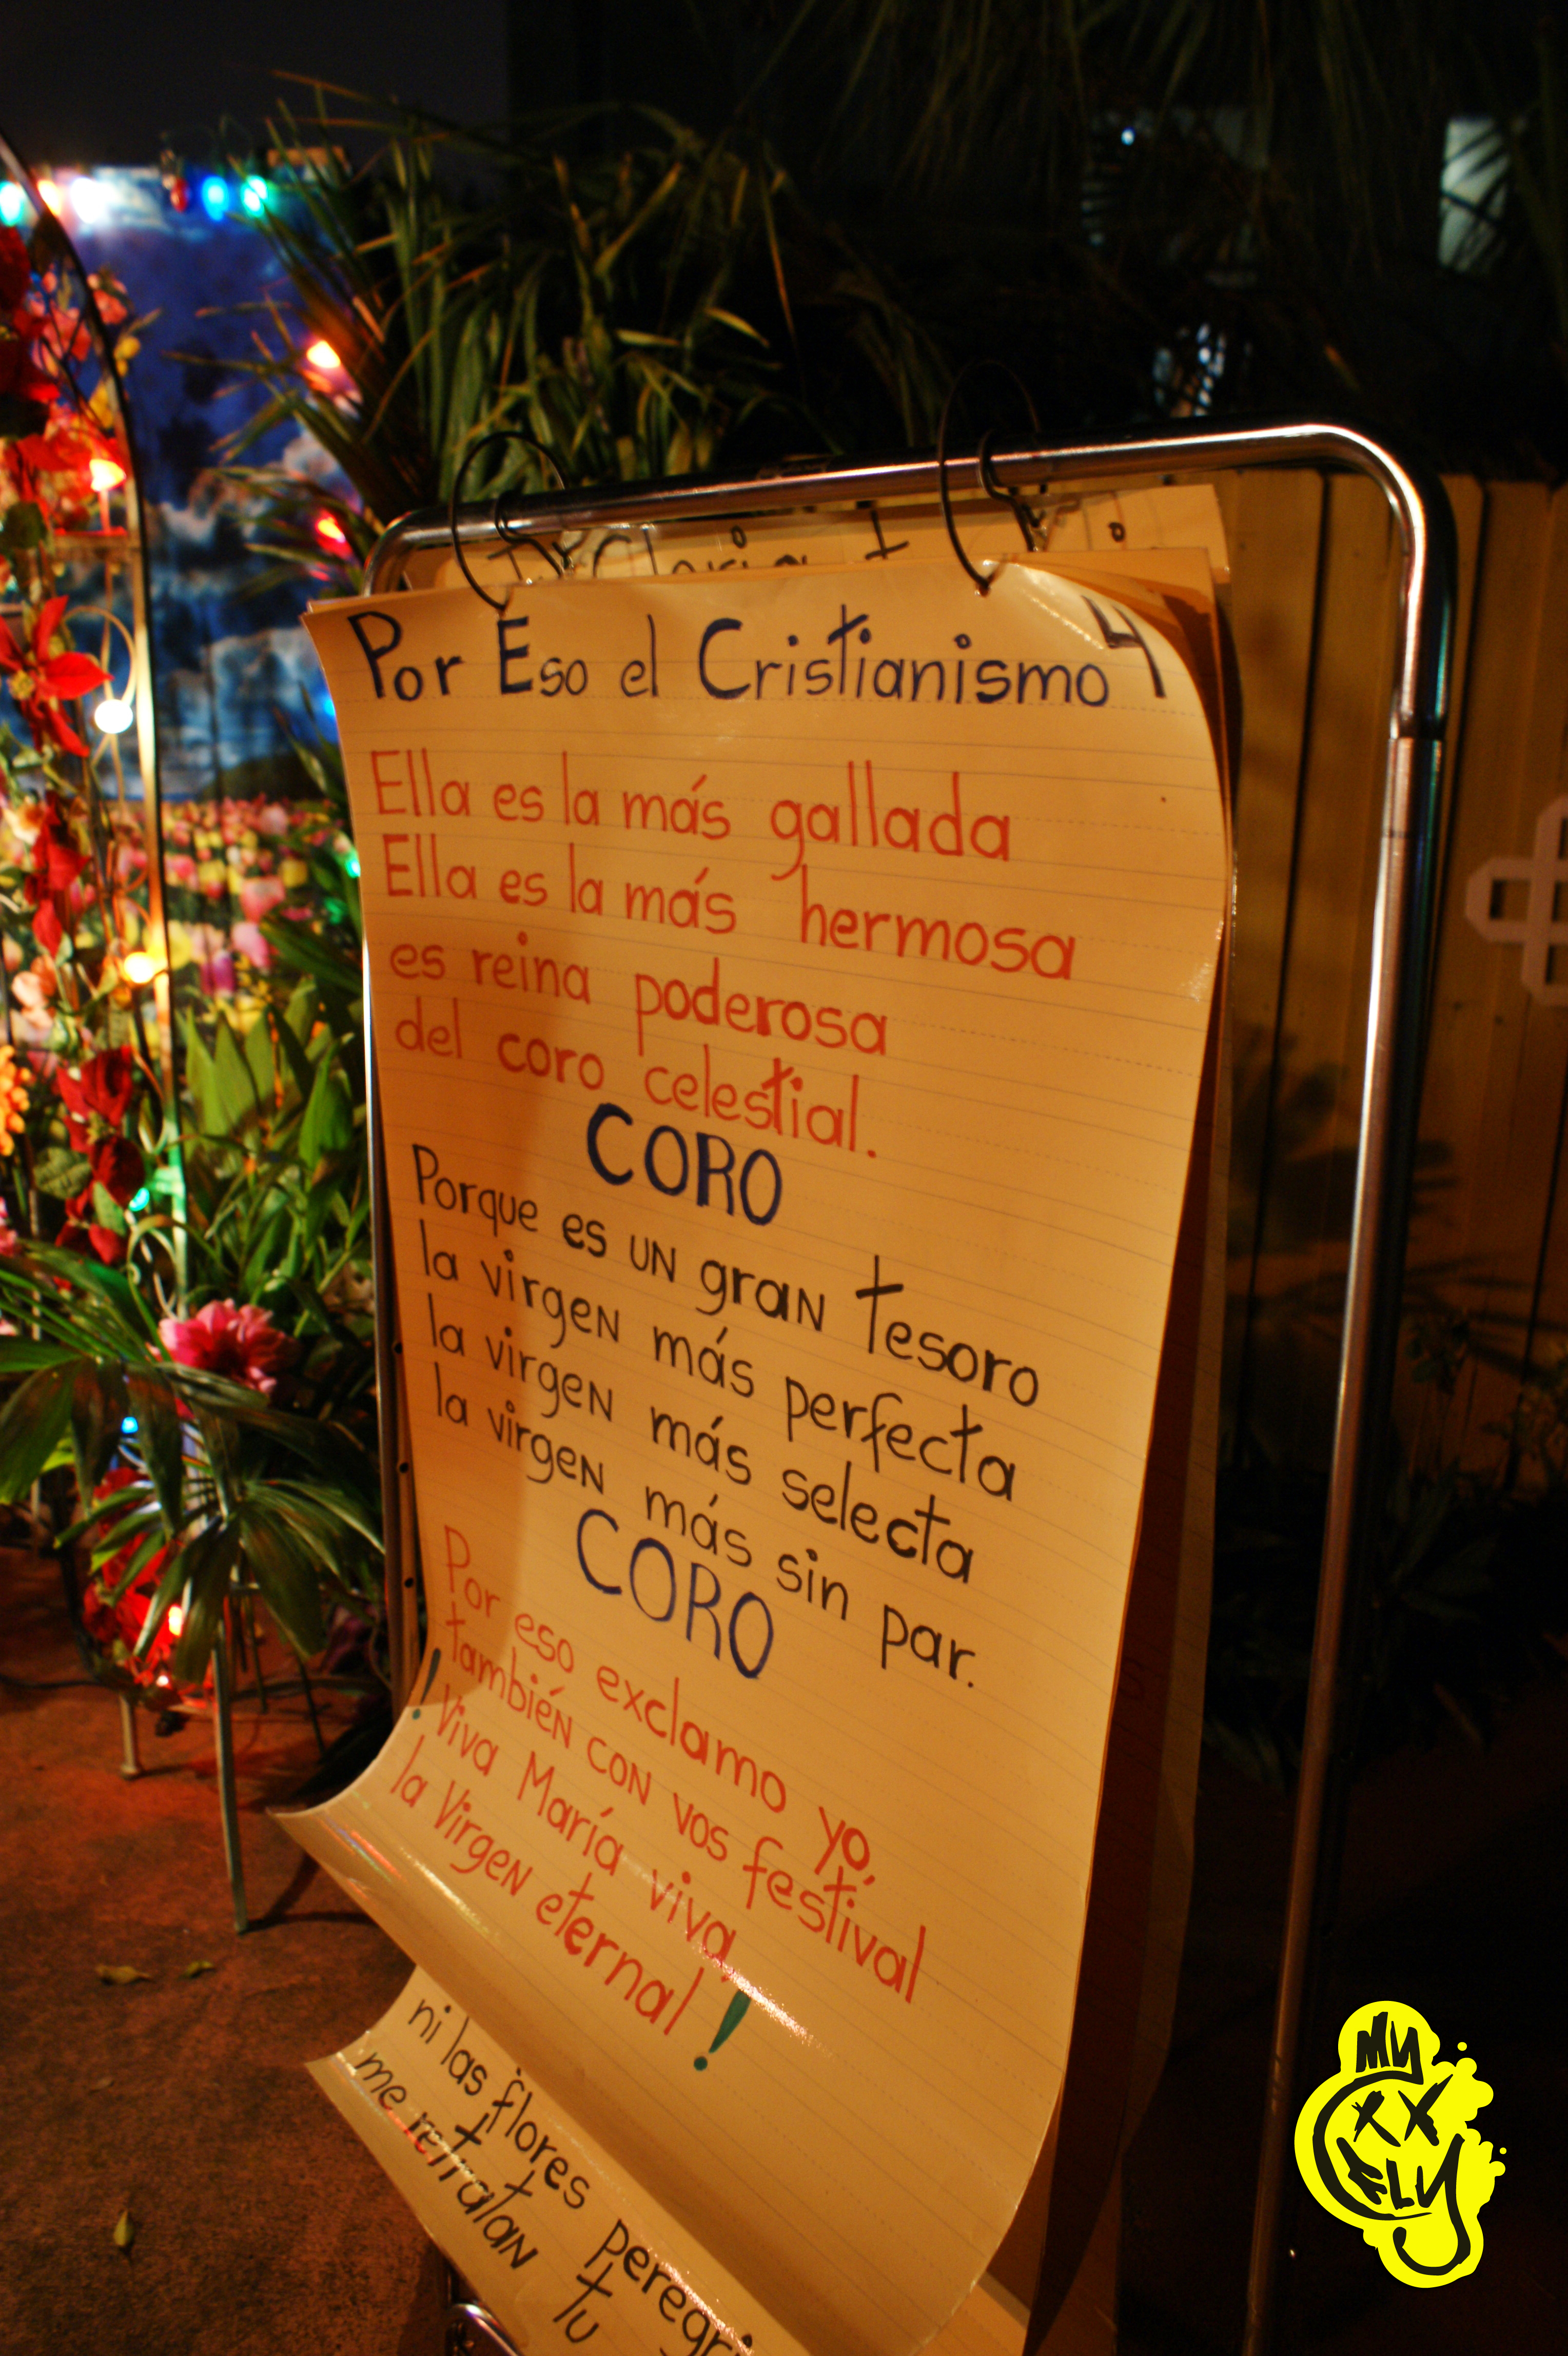 Por Eso el Cristianismo 4
Ella es la más gallada
Ella es la más hermosa
es reina poderosa
del coro celestial.
CORO
Porque es un gran tesoro
la virgen más perfecta
la virgen más selecta
la virgen más sin par.
CORO
Por eso exclamo yo,
también con vos festival
! Viva María viva,
la Virgen eternal !
ni las flores
me retratan tu
MY
FLY